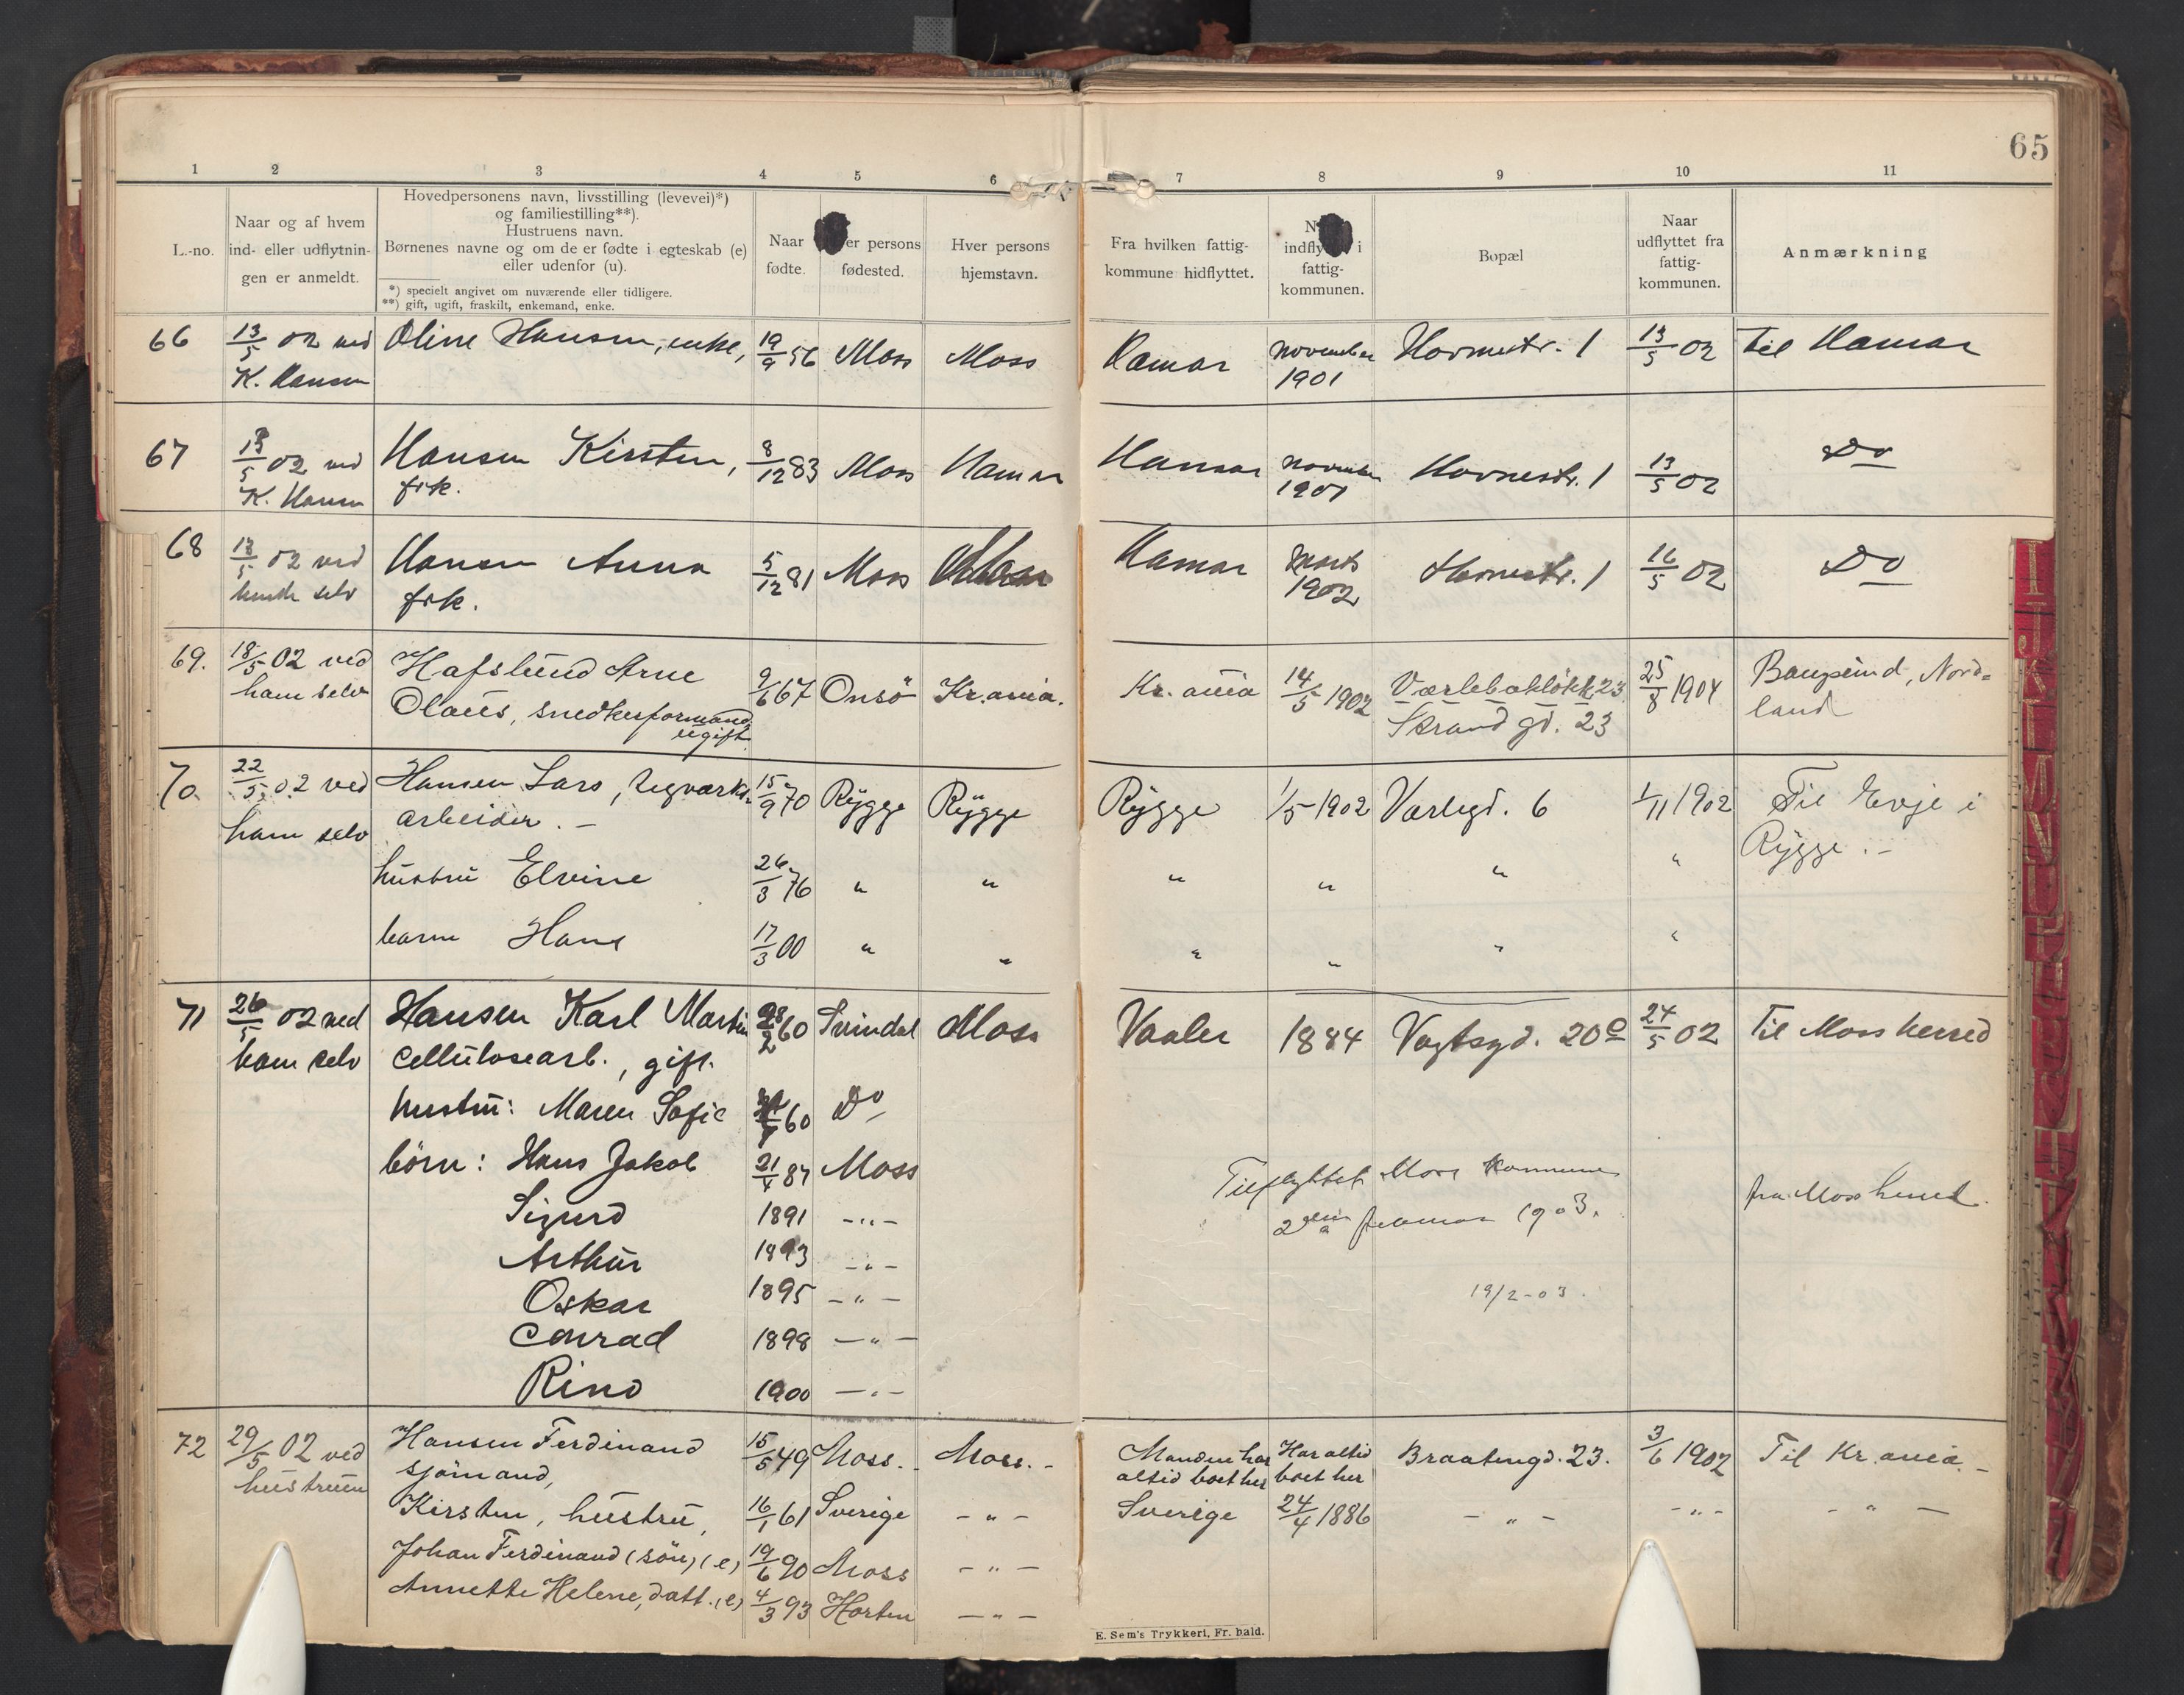 65
1 2 3 4 5 6 7 8 9 10 11
L.-no.
Naar og af hvem
ind- eller udflytnin-
gen er anmeldt.
Hovedpersonens navn, livsstilling (levevei)*)
og familiestilling**).
Hustruens navn.
Børnenes navne og om de er fødte i egteskab (e)
eller udenfor (u).
*) specielt angivet om nuværende eller tidligere.
**) gift, ugift, fraskilt, enkemand, enke.
Naar
fødte.
er persons
fødested.
Hver persons
hjemstavn.
Fra hvilken fattig-
kommune hidflyttet.
indfly i
fattig-
kommunen.
Bopæl
Naar
udflyttet fra
fattig-
kommunen.
Anmærkning
66 13/5 02 ved Oline Hansen, enke, 19/9 56 Moss Moss Hamar november Hornestr. 1 13/5 02 til Hamar
K. Hansen 1901
67 13/5 02 ved Hansen Kirsten, 8/12 83 Moss Hamar Hamar november Hornestr. 1 13/5 02 Do
K. Hansen frk. 1901
68 13/5 02 ved Hansen Anna 5/12 81 Moss Hamar Marts Hornestr. 1 16/5 02 Do
hende selv frk. 1902
69. 18/5 02 ved Hafslund Arne 9/6 67 Onsö Kr.ania. Kr. ania 14/5 1902 Værlebakløkk 23 25/8 1904 , Nord-
ham selv Olaus, snedkerformand, Strandgd. 23 land
ugift.
70. 22/5 02 ved Hansen Lars, tegværks- 15/9 70 Rygge Rygge Rygge 1/5 1902 Varlegd. 6 1/11 1902 Til Evje i
ham selv arbeider. – Rygge. –
hustru Elvine 26/3 76 " " " " " "
barn Hans 17/3 00 " " " " " "
71 26/5 02 ved Hansen Karl Martin 28/2 60 Svindal Moss Vaaler 1884 Vogtsgd. 20e 24/5 02 Til Moss herred
ham selv cellulosearb., gift.
hustru: Maren Sofie 60 Do
börn: Hans Jakob 21/4 87 Moss
Tilflyttet Moss kommune fra Moss herred.
Sigurd 1891 – " –
2den februar 1903.
Arthur 1893 – " –
Oskar 1895 – " – 19/2-03.
Conrad 1898 – " –
Rino 1900 – " –
72 29/5 02 ved Hansen Ferdinand 15/5 49 Moss. Moss. – Manden har Har altid Braatengd. 23. 3/6 1902 Til Kr.ania. –
hustruen sjömand, altid boet her boet her
Kirsten, hustru, 16/1 61 Sverige – " – Sverige 24/4 1886 – " – – " – – " –
Johan Ferdinand (sön) (e) 19/6 90 Moss – " –
Annette Helene, datt. (e) 4/3 93 Horten – " –
E. Sem's Trykkeri, Fr. hald.
I
J
K
L
M
N